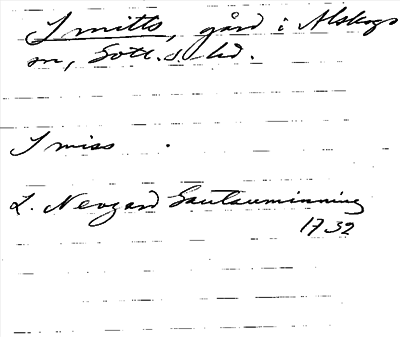 Smitts, gård i Alskogs
sn, Gotl. s. hd.
Smiss
L. Neogard Gautauminning
1732